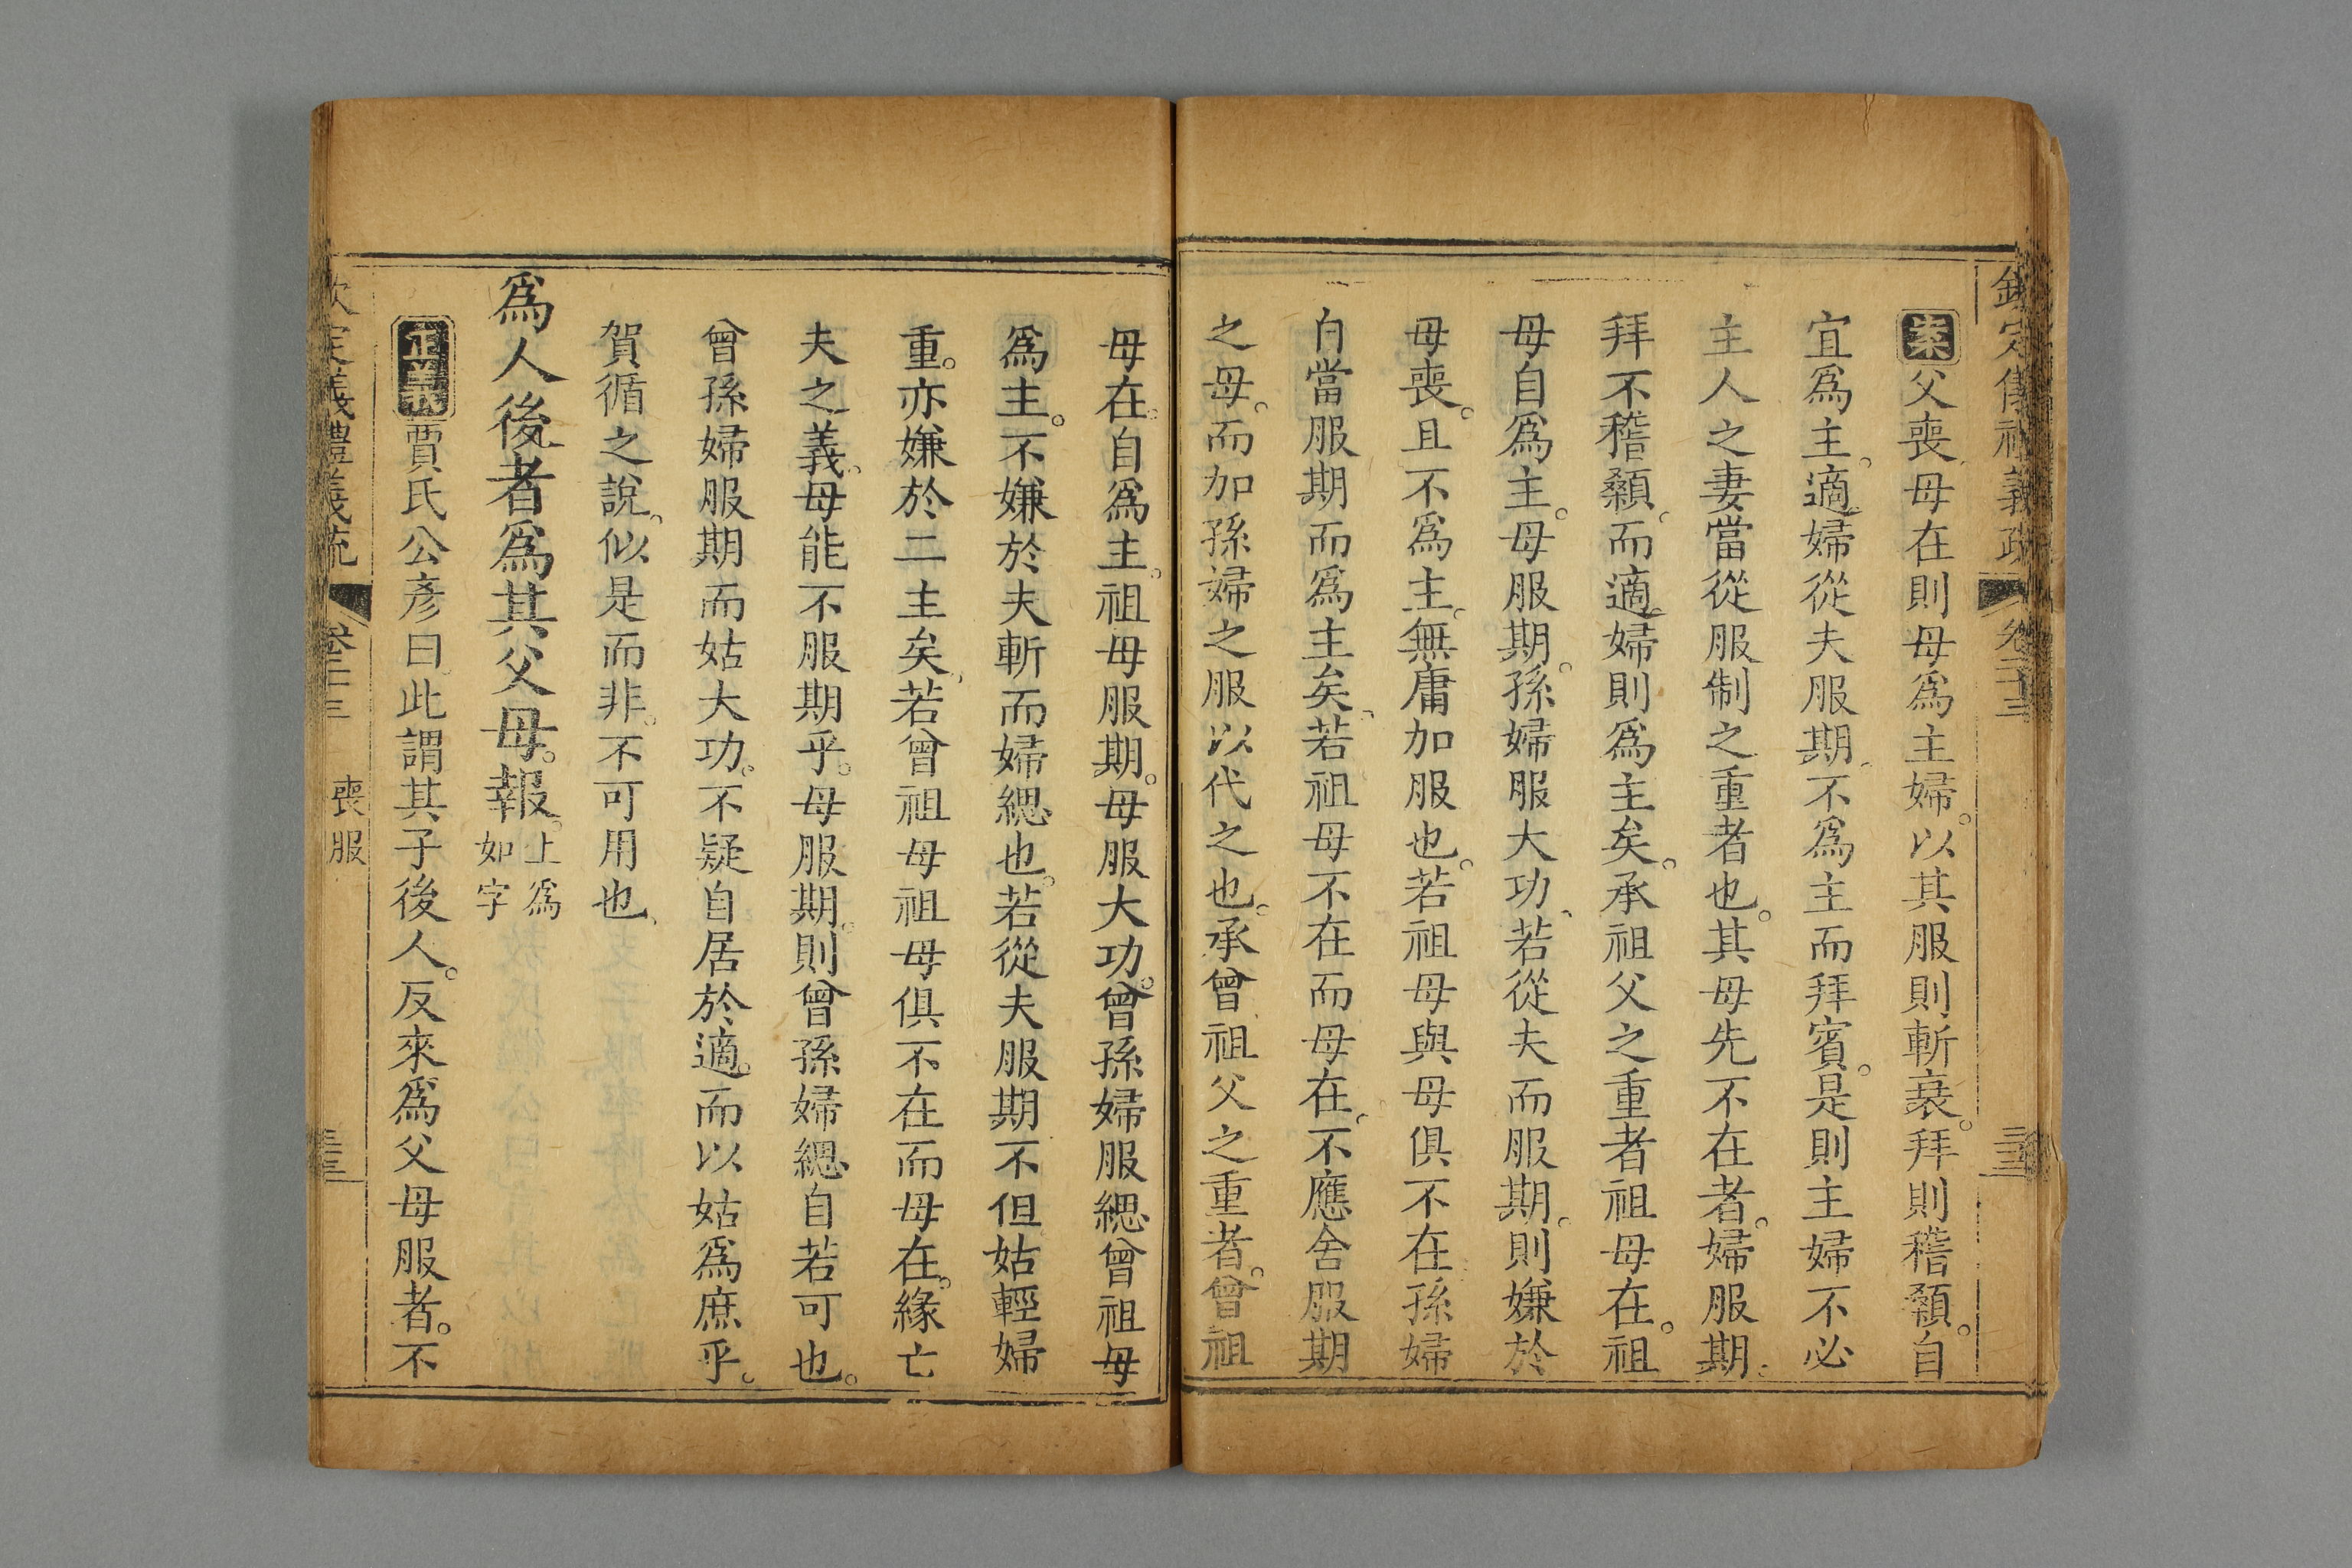 欽定儀禮義疏 卷二十三
案父喪母在則母爲主婦。以其服則斬衰。拜則稽顙。自
宜爲主。適婦從夫服期、不爲主而拜賓。是則主婦不必
主人之妻當從服制之重者也。其母先不在者。婦服期、
拜不稽顙。而適婦則爲主矣。承祖父之重者祖母在。祖
母自爲主。母服期。孫婦服大功、若從夫而服期。則嫌於
母喪。且不爲主。無庸加服也。若祖母與母俱不在孫婦
自當服期而爲主矣、若祖母不在而母在、不應舍服期
之母。而加孫婦之服以代之也。承曾祖父之重者。曾祖
母在。自爲主。祖母服期。母服大功。曾孫婦服緦曾祖母
爲主。不嫌於夫斬而婦緦也。若從夫服期不但姑輕婦
重。亦嫌於二主矣、若曾祖母祖母俱不在而母在。緣亡
夫之義。母能不服期乎。母服期。則曾孫婦緦自若可也。
曾孫婦服期而姑大功。不疑自居於適。而以姑爲庶乎。
賀循之說。似是而非。不可用也、
爲人後者爲其父母。報。上爲如字
正義賈氏公彥曰。此謂其子後人。反來爲父母服者。不
欽定義禮義疏 卷二十三 喪服